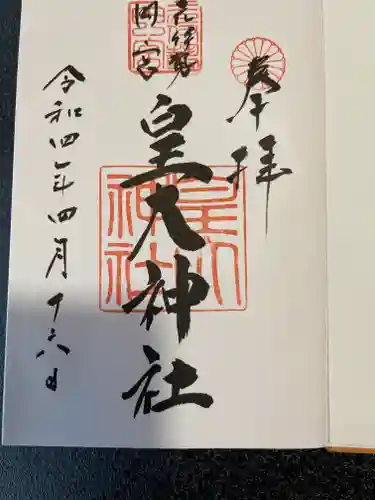 奉拝
元伊勢
内宮
皇大神社
令和四年四月十六日